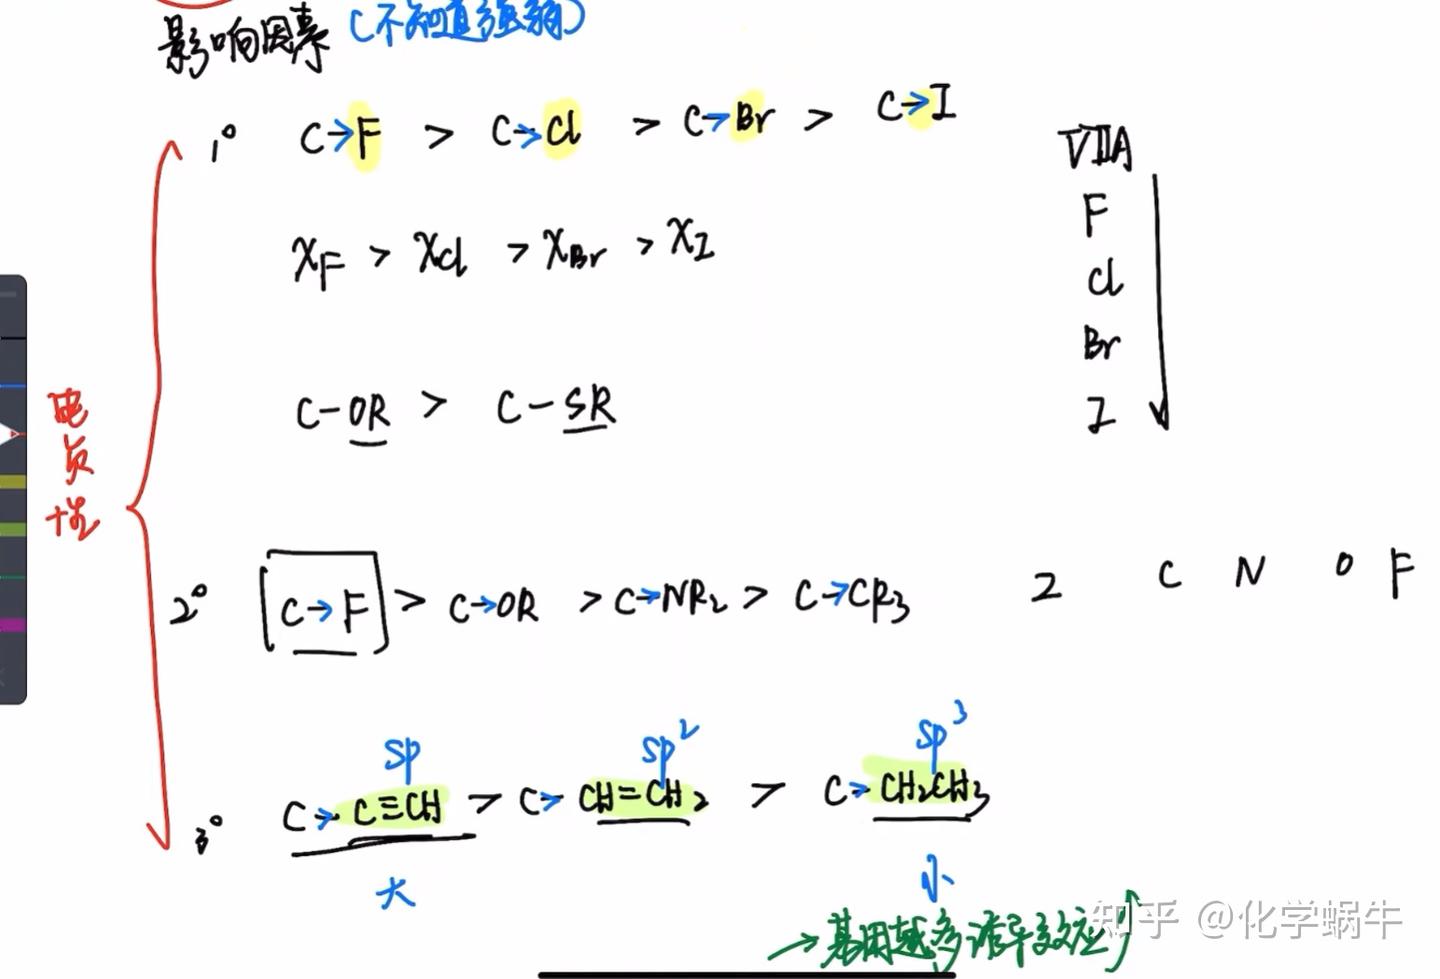 影响因素 (不知道强弱)
1° C→F > C→Cl > C→Br > C→I
ⅦA
F
Cl
Br
I
χF > χCl > χBr > χI
C-OR > C-SR
电负性
2° [C→F] > C→OR > C→NR₂ > C→CR₃
2 C N O F
sp sp² sp³
3° C→C≡CH > C→CH=CH₂ > C→CH₂CH₃
大 小
→基团越多诱导效应↗
知乎 @化学蜗牛